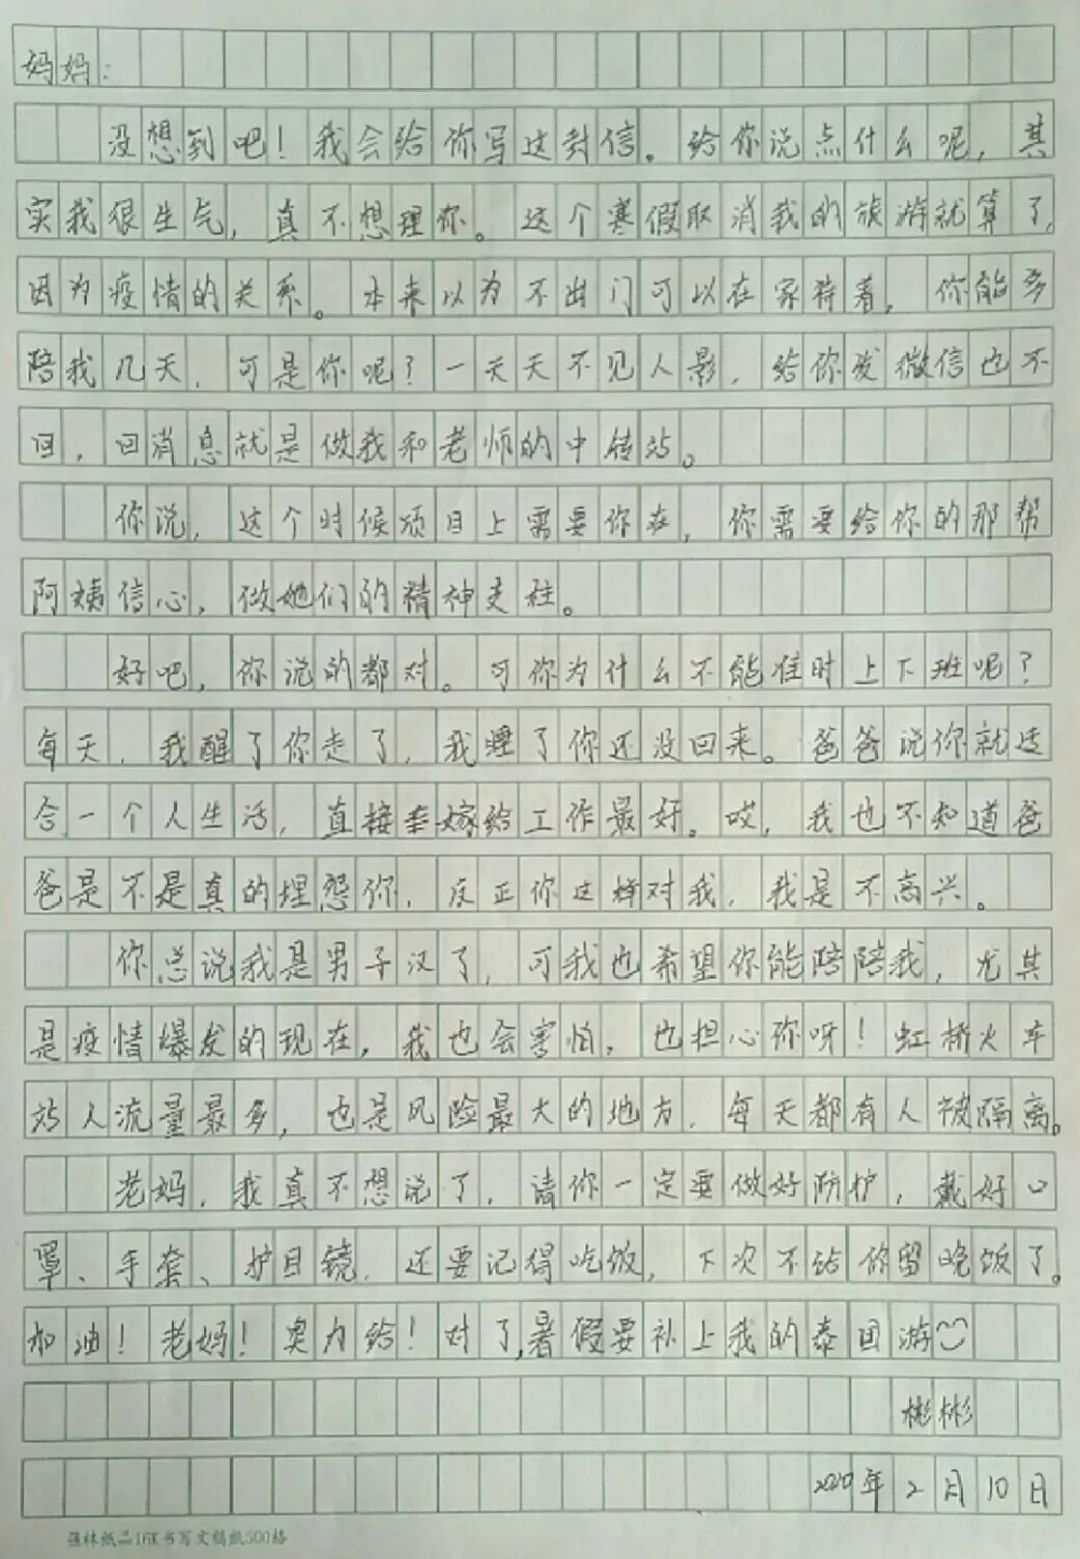 妈妈：
没想到吧！我会给你写这封信。给你说点什么呢，其
实我很生气，真不想理你。这个寒假取消我的旅游就算了，
因为疫情的关系。本来以为不出门可以在家待着，你能多
陪我几天，可是你呢？一天天不见人影，给你发微信也不
回，回消息就是做我和老师的中转站。
你说，这个时候项目上需要你在，你需要给你的那帮
阿姨信心，做她们的精神支柱。
好吧，你说的都对。可你为什么不能准时上下班呢？
每天，我醒了你走了，我睡了你还没回来。爸爸说你就适
合一个人生活，直接嫁给工作最好。哎，我也不知道爸
爸是不是真的埋怨你，反正你这样对我，我是不高兴。
你总说我是男子汉了，可我也希望你能陪陪我，尤其
是疫情爆发的现在，我也会害怕，也担心你呀！虹桥火车
站人流量最多，也是风险最大的地方，每天都有人被隔离。
老妈，我真不想说了，请你一定要做好防护，戴好口
罩、手套、护目镜，还要记得吃饭，下次不给你留晚饭了。
加油！老妈！奥力给！对了，暑假要补上我的泰国游
彬彬
2020年2月10日
强林纸品16K书写文稿纸500格